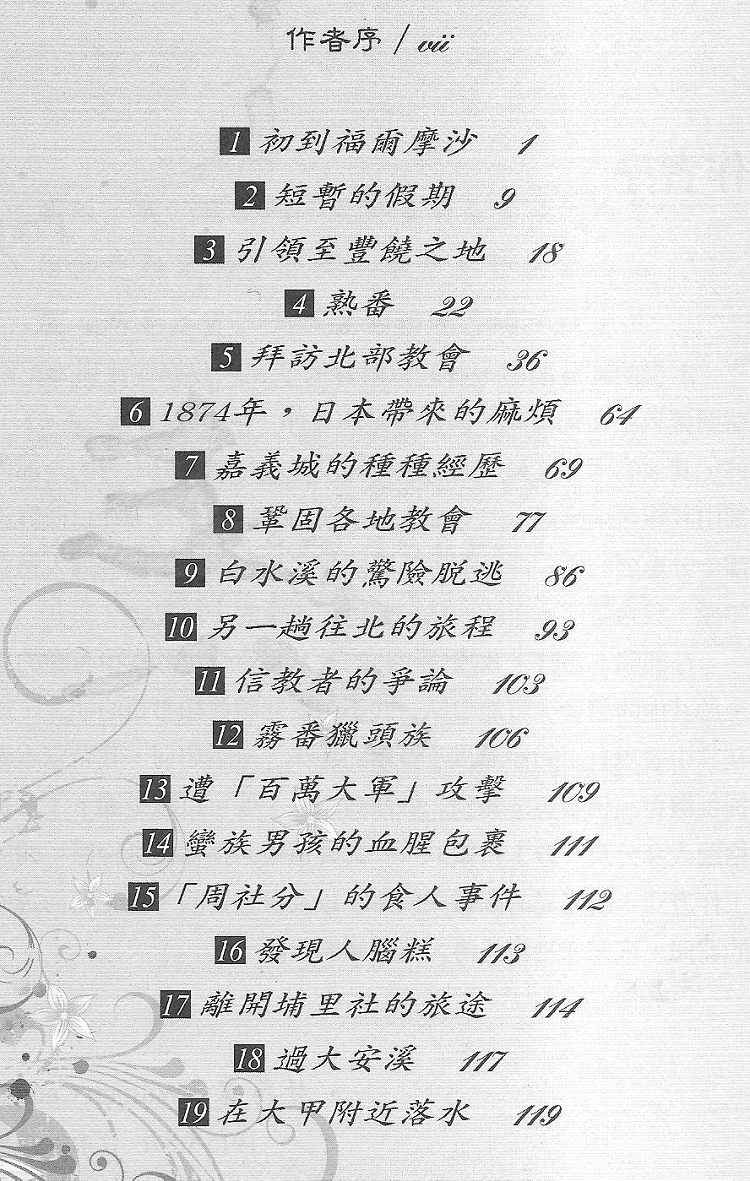 作者序 / vii
1 初到福爾摩沙 1
2 短暫的假期 9
3 引領至豐饒之地 18
4 熟番 22
5 拜訪北部教會 36
6 1874年，日本帶來的麻煩 64
7 嘉義城的種種經歷 69
8 鞏固各地教會 77
9 白水溪的驚險脫逃 86
10 另一趟往北的旅程 93
11 信教者的爭論 103
12 霧番獵頭族 106
13 遭「百萬大軍」攻擊 109
14 蠻族男孩的血腥包裹 111
15 「周社分」的食人事件 112
16 發現人腦糕 113
17 離開埔里社的旅途 114
18 過大安溪 117
19 在大甲附近落水 119